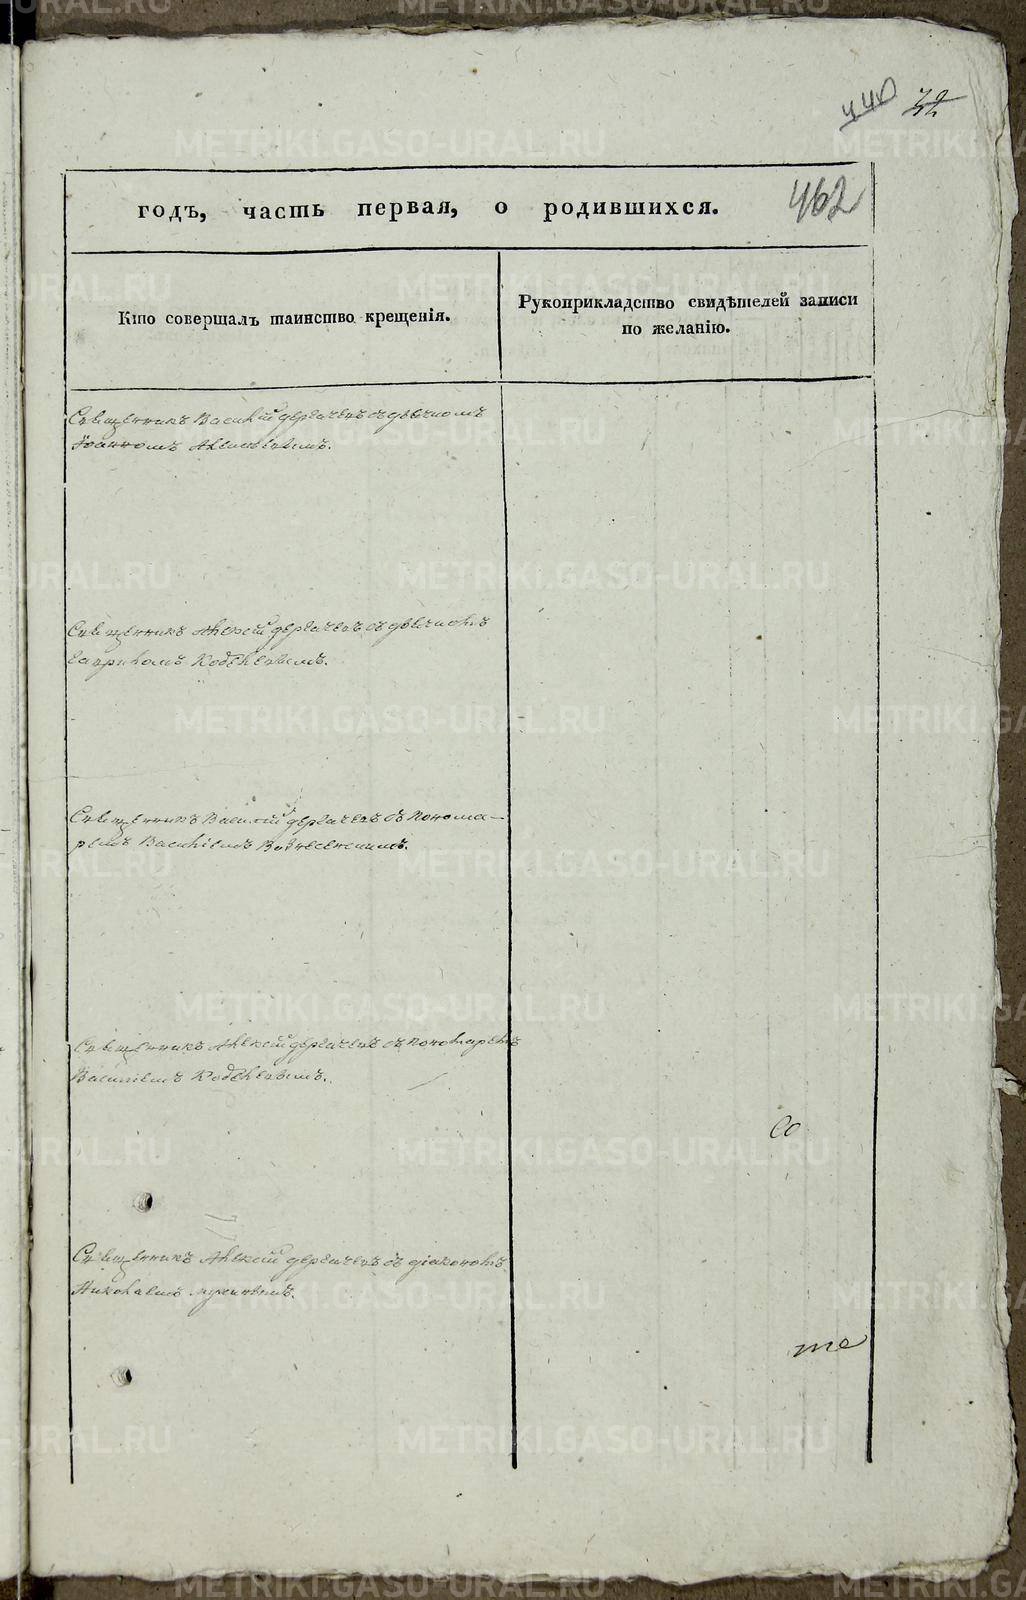 440 32
462
годъ, часть первая, о родившихся.
Кто совершалъ таинство крещенія.
Рукоприкладство свидѣтелей записи
по желанію.
Священникъ Василій Дергачевъ съ дьячкомъ
Іоанномъ
Священникъ Алексій Дергачевъ съ дьячкомъ
Гавриломъ
Священникъ Василій Дергачевъ съ понома-
ремъ Василіемъ Вознесенскимъ.
Священникъ Алексій Дергачевъ съ пономаремъ
Василіемъ
Со
Священникъ Алексій Дергачевъ съ діакономъ
Николаемъ
те
METRIKI.GASO-URAL.RU